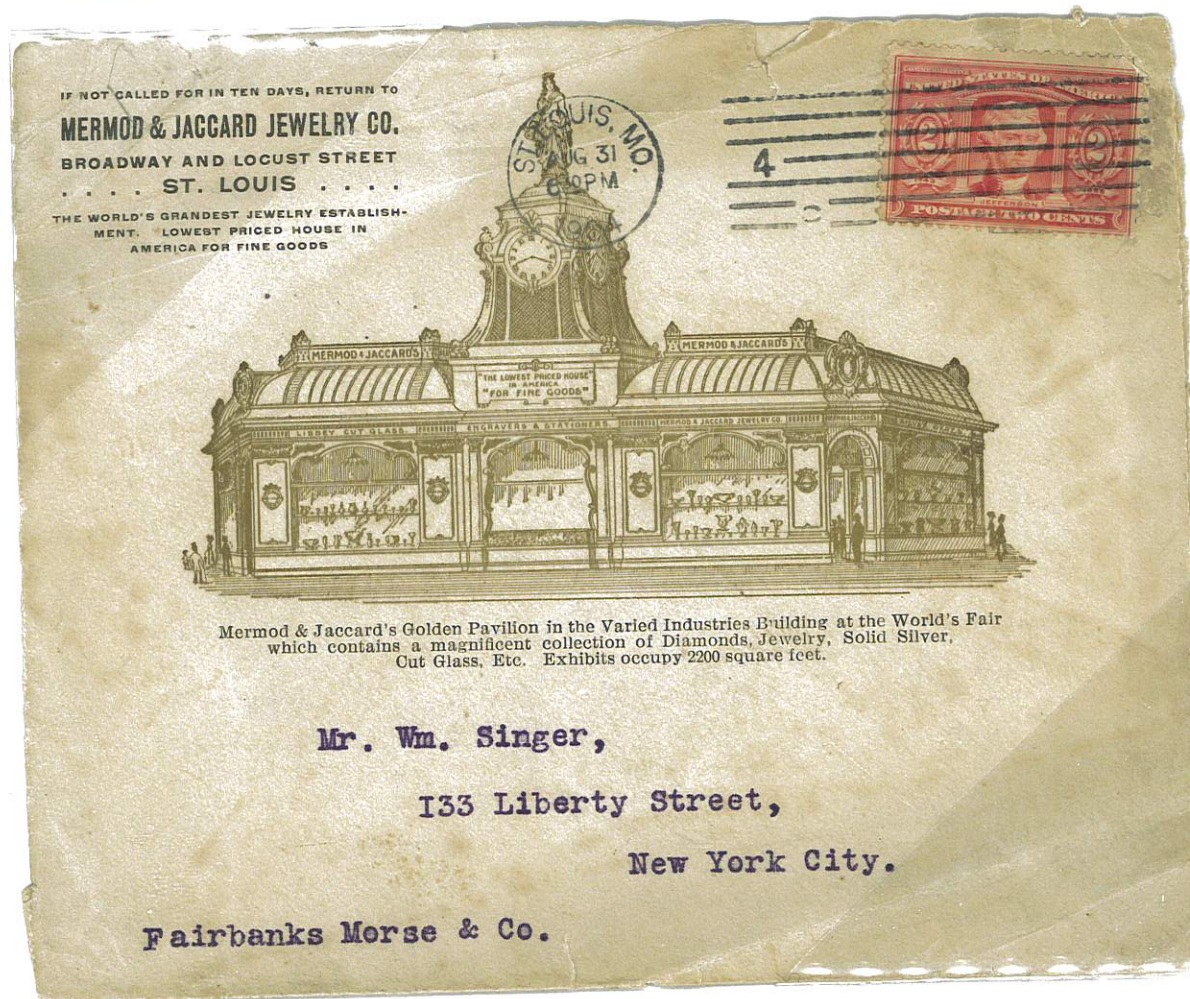 IF NOT CALLED FOR IN TEN DAYS, RETURN TO
MERMOD & JACCARD JEWELRY CO.
BROADWAY AND LOCUST STREET
. . . . ST. LOUIS . . . .
THE WORLD'S GRANDEST JEWELRY ESTABLISH-
MENT. LOWEST PRICED HOUSE IN
AMERICA FOR FINE GOODS
ST. LOUIS, MO.
AUG 31
PM
4
UNITED STATES OF AMERICA
2 2
JEFFERSON
POSTAGE TWO CENTS
MERMOD & JACCARD'S
MERMOD & JACCARD'S
"THE LOWEST PRICED HOUSE"
IN AMERICA
"FOR FINE GOODS"
LIBBEY CUT GLASS.
ENGRAVERS & STATIONERS
MERMOD & JACCARD JEWELRY CO
Mermod & Jaccard's Golden Pavilion in the Varied Industries Building at the World's Fair
which contains a magnificent collection of Diamonds, Jewelry, Solid Silver,
Cut Glass, Etc. Exhibits occupy 2200 square feet.
Mr. Wm. Singer,
I33 Liberty Street,
New York City.
Fairbanks Morse & Co.